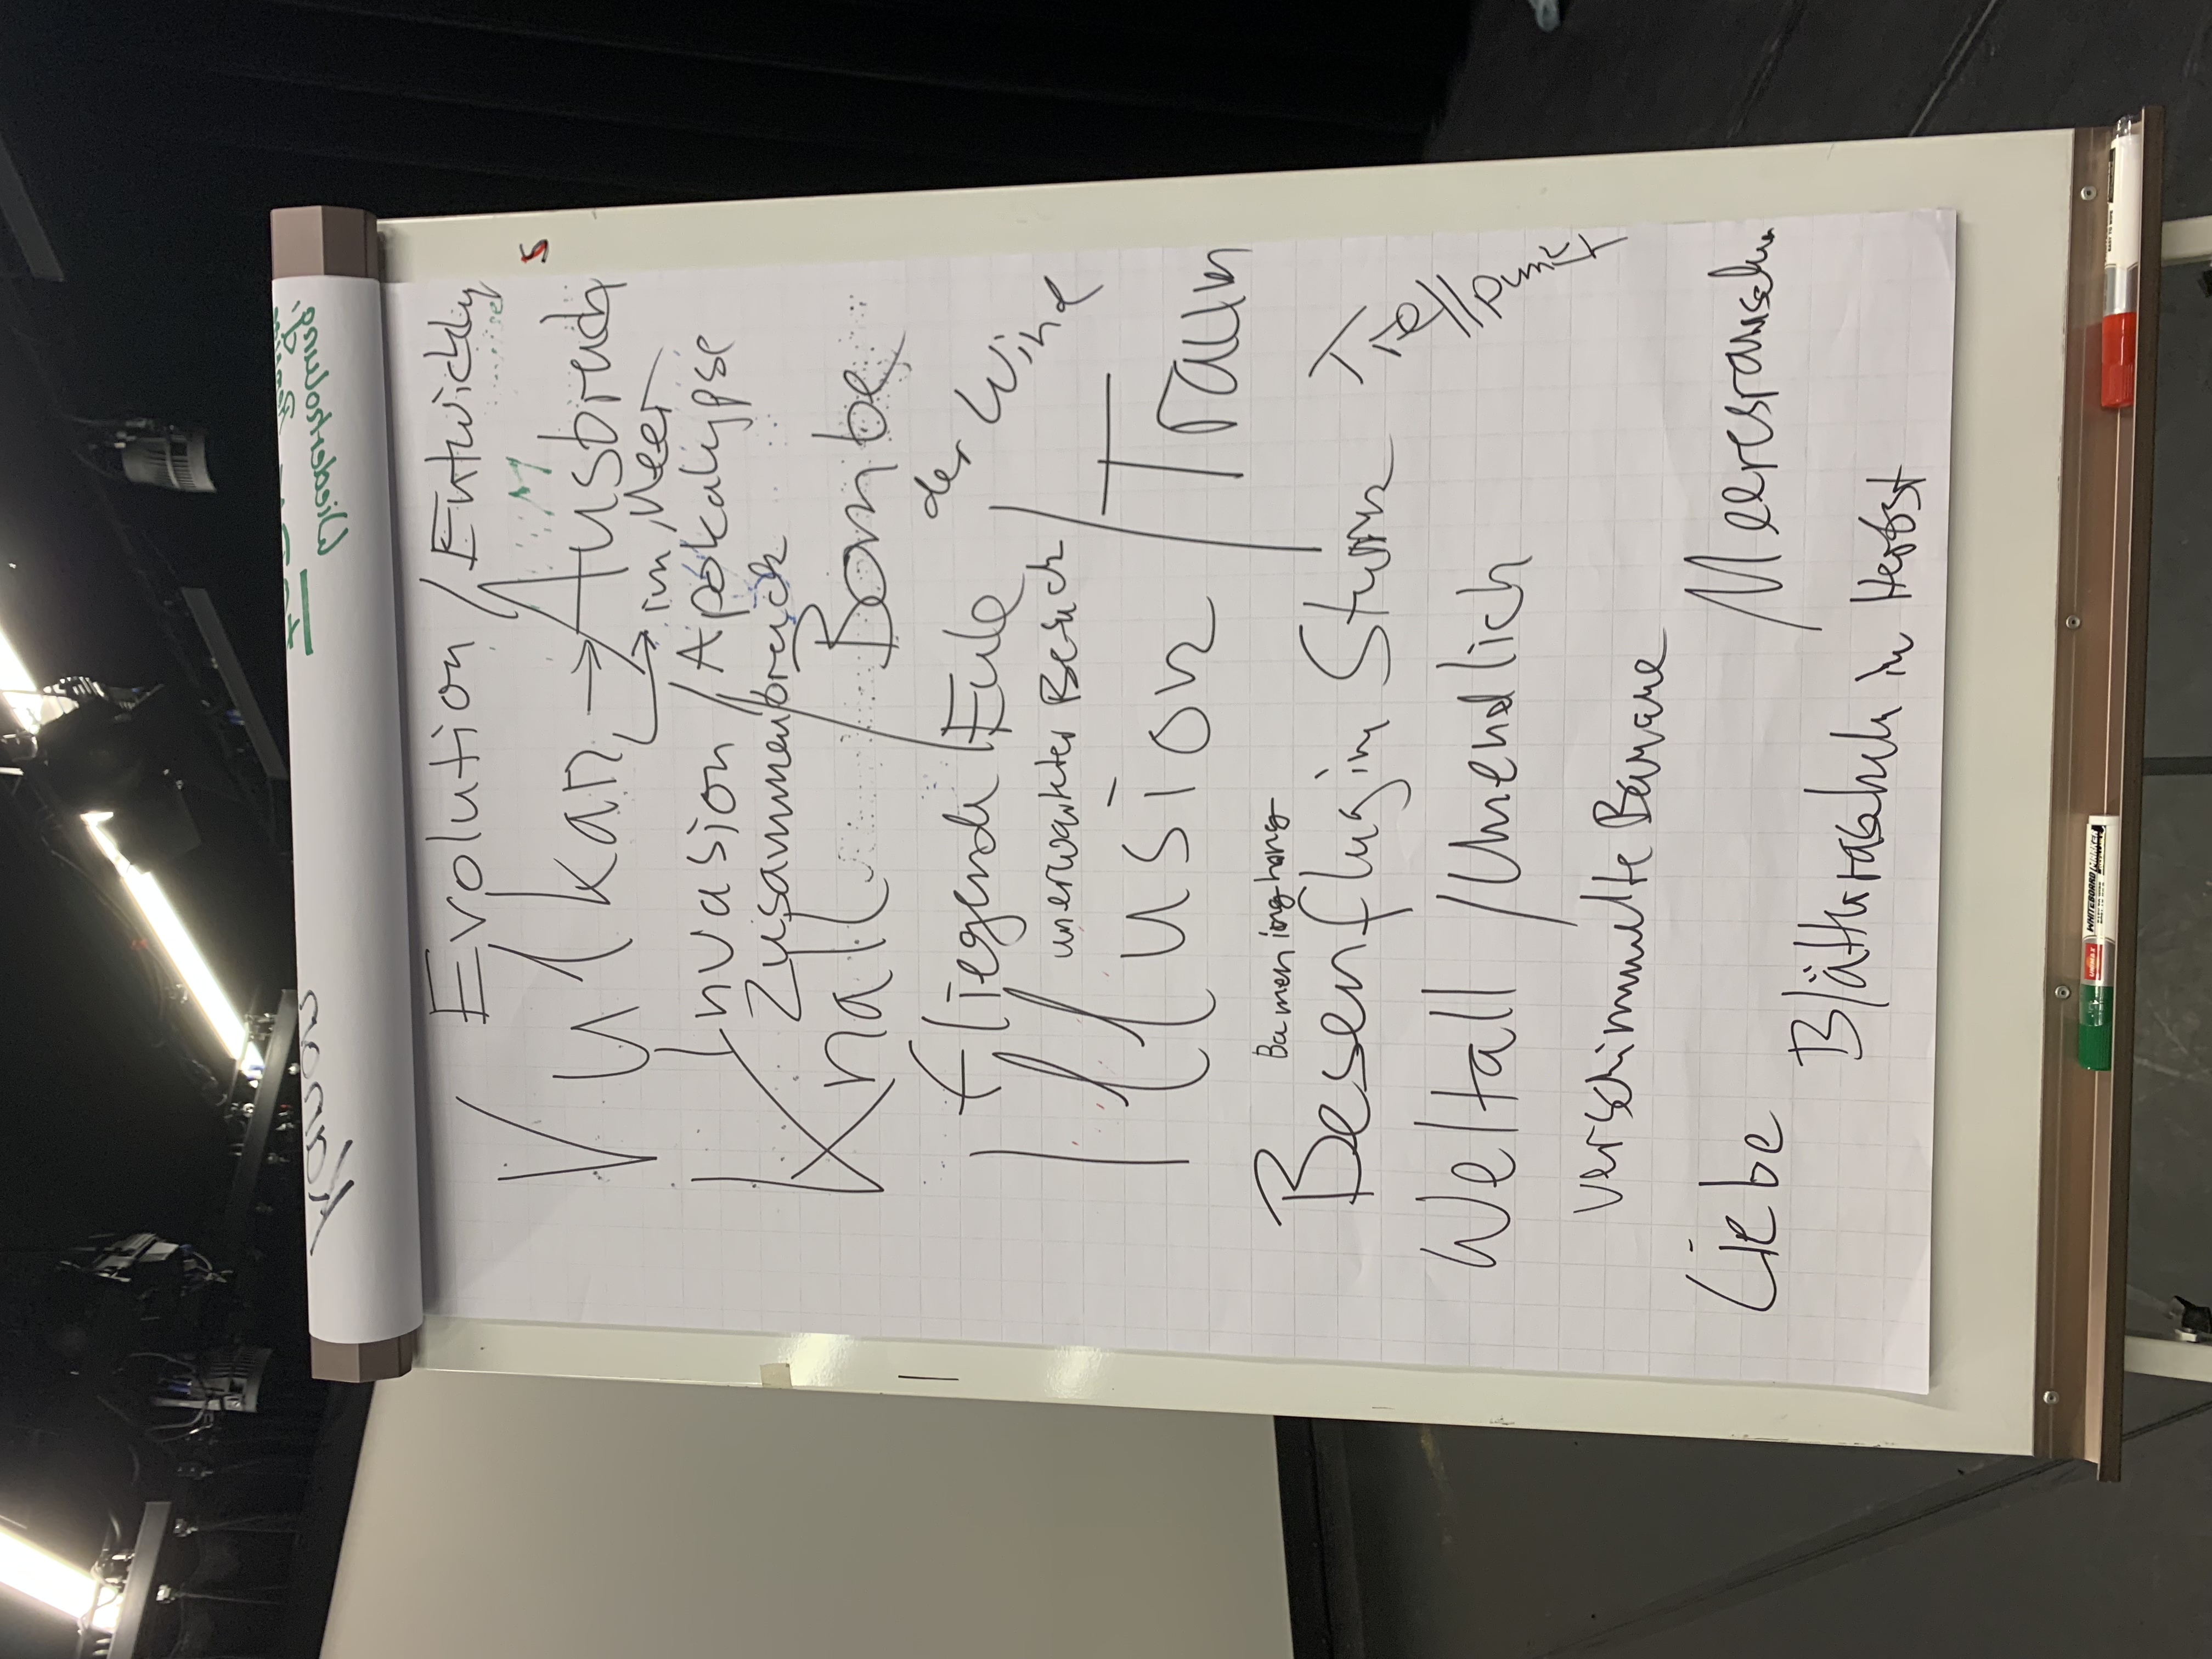 Evolution / Entwickly
Vulkan → Ausbruch
→ im Meer
Invasion / Apokalypse
Zusammenbruch
Knall / Bombe
fliegende Eule
der Wind
unerwarteter Besuch
Illusion / Traum
Bamen ing hang
Besenflug im Sturm
Treffpunkt
Weltall / Unendlich
verschimmelte Banane
Liebe
Meeresrauschen
Blätterrascheln im Herbst
WHITEBOARD